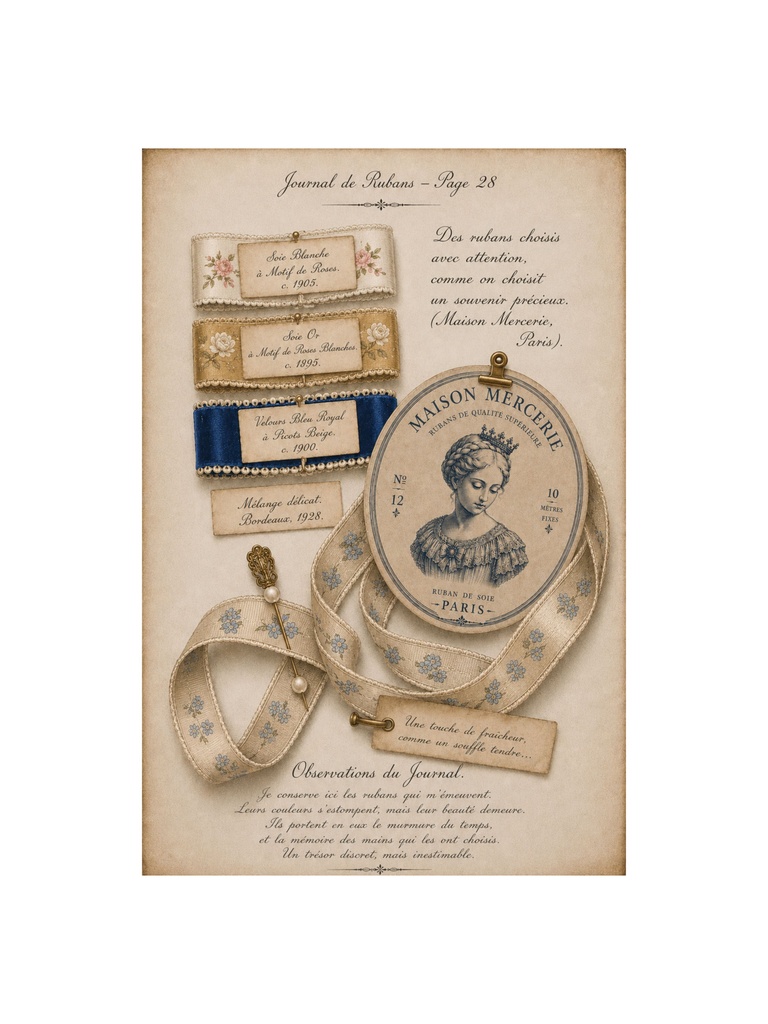 Journal de Rubans – Page 28
Soie Blanche
à Motif de Roses.
c. 1905.
Soie Or
à Motif de Roses Blanches.
c. 1895.
Velours Bleu Royal
à Picots Beige.
c. 1900.
Mélange délicat.
Bordeaux, 1928.
Des rubans choisis
avec attention,
comme on choisit
un souvenir précieux.
(Maison Mercerie,
Paris).
MAISON MERCERIE
RUBANS DE QUALITE SUPERIEURE
Nº
12
10
MÈTRES
FIXES
RUBAN DE SOIE
-PARIS-
Une touche de fraîcheur,
comme un souffle tendre...
Observations du Journal.
Je conserve ici les rubans qui m'émeuvent.
Leurs couleurs s'estompent, mais leur beauté demeure.
Ils portent en eux le murmure du temps,
et la mémoire des mains qui les ont choisis.
Un trésor discret, mais inestimable.